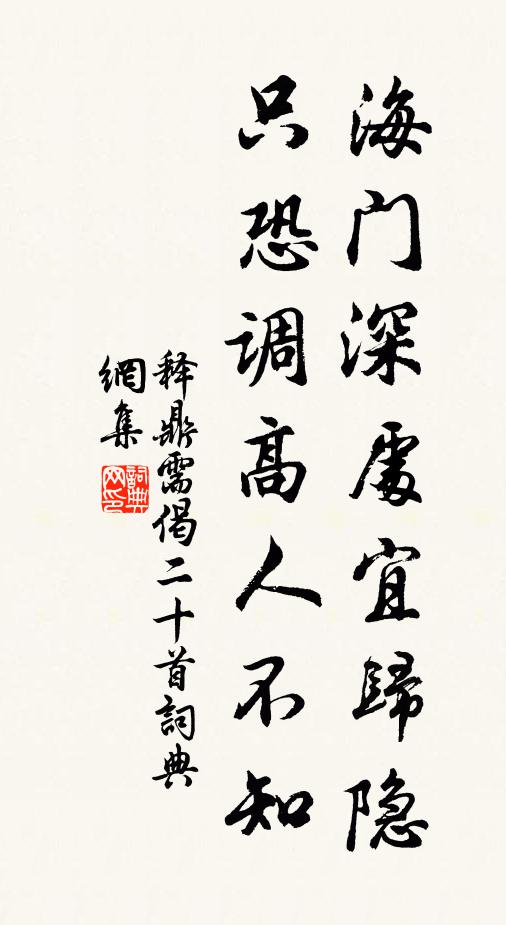 海门深處宜歸隐
只恐调高人不知
释鼎需偈二十首詞典
網集
詞典網印